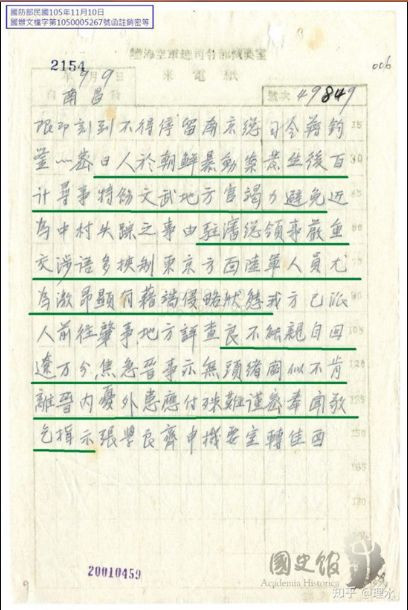 國防部民國105年11月10日
國辦文檔字第1050005267號函註銷密等
陸海空軍總司令部機要室
2154
006
9月9日
來電紙
南昌
號次 49849
限即刻到不得停留南京總司令蔣鈞
密日人於朝鮮暴動案發生後百
計尋事特飭文武地方官竭力避免近
為中村失踪之事由駐瀋總領事嚴重
交涉語多挾制東京方面陸軍人員尤
為激昂顯有藉端侵略狀態我方已派
人前往肇事地方詳查良不能親自回
遼万分焦急晉事亦無頭緒閻似不肯
離晉內憂外患應付殊難謹密奉聞敬
乞指示張學良齊申機要室轉佳酉
20010459
國史館
Academia Historica
知乎 @理水